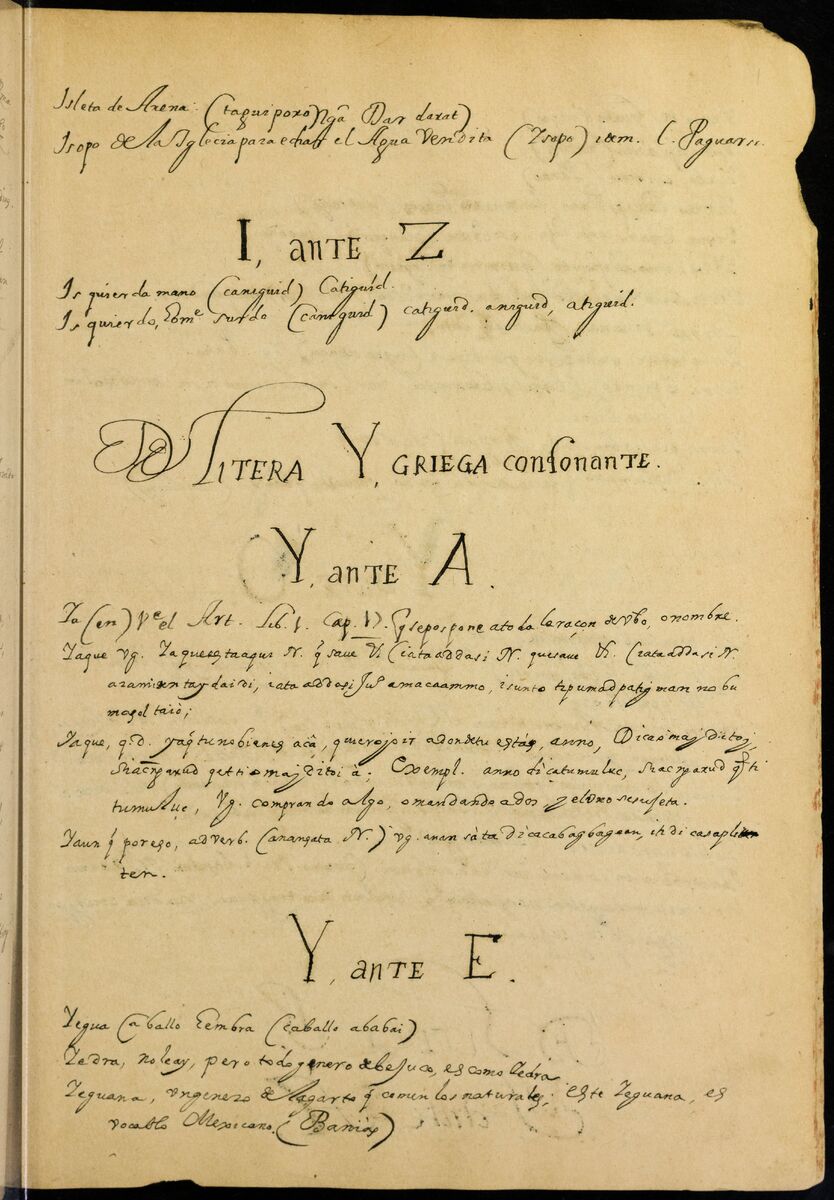 Isleta de Arena. (taguiporo) Ngã Dar darat)
Isopo de la Iglecia para echar el Agua Vendita (Isopo) idem. l. Paguarsi.
I, ante Z
Isquierda mano (caniguid) Catiguid.
Isquierdo, Eom.e surdo (caniguid) catiguid. aniguid, atiguid.
D Litera Y, griega consonante.
Y, ante A.
Ya (en) Ve el Art. Lib. 1. Cap. 1). q̃ se pospone a toda la raçon de vbo, o nombre.
Yaque vg. Yaque esta aqui N. q̃ save Vi (iata addasi N. que save Vi. (iata addasi N.
aramientay daidi, iata addasi Jus amacaammo, isunto tipumadpatigman no bu
magol taiò;
Yaque, q.d. yaq̃ tu no bienes acà, quiero yo ir adonde tu estàs, anno,
qettiomajditoi à; Exempl. anno dicatumuluc, q̃ ti
tumuluc, Vg. comprando algo, o mandando a dos, y el uno se sujeta.
Yaunq̃ por eso, adverb. (anangata N.) vg. anan sàta dicacabagbagaan, iti di casapli
ter.
Y, ante E.
Yegua (caballo Eembra (caballo ababai)
Yedra, no le ay, pero todo genero de bejuco, es como Yedra
Yeguana, un genero de lagarto q̃ comen los naturales; este Yeguana, es
vocablo Mexicano. (Banias)